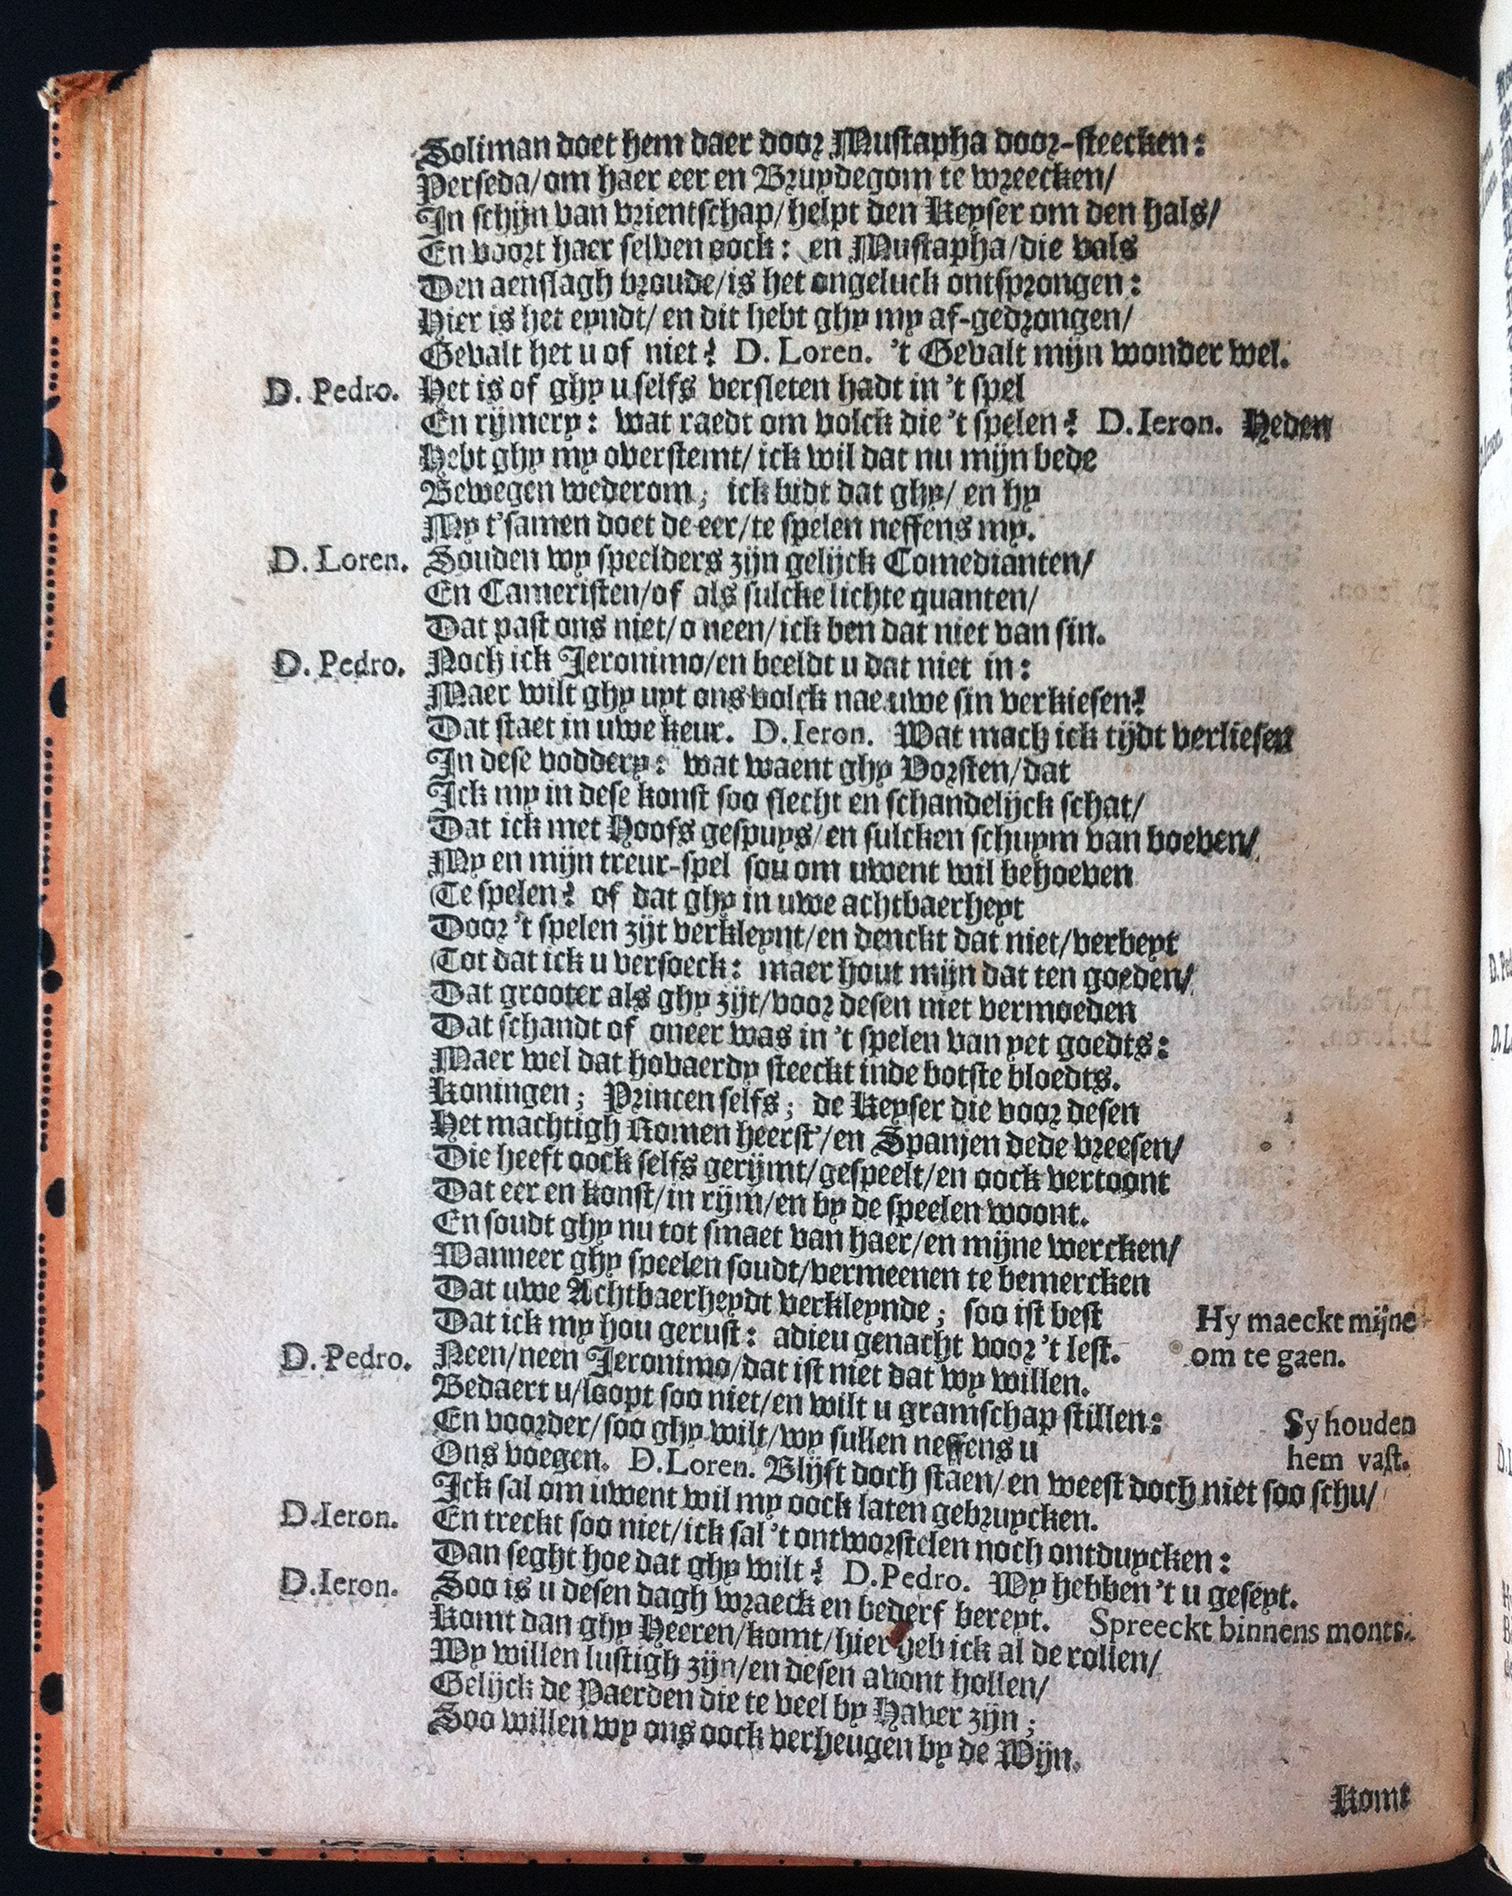 Soliman doet hem daer door Mustapha door-steecken:
Perseda/om haer eer en Bruydegom te wreecken/
In schijn van vrientschap/helpt den Keyser om den hals/
En voort haer selven oock: en Mustapha/die vals
Den aenslagh broude/is het ongeluck ontsprongen:
Hier is het eyndt/en dit hebt ghy my af-gedrongen/
Gevalt het u of niet? D. Loren. 't Gevalt mijn wonder wel.
D. Pedro. Het is of ghy u selfs versleten hadt in 't spel
En rijmery: wat raedt om volck die 't spelen? D. Ieron. Heden
Hebt ghy my overstemt/ick wil dat nu mijn bede
Bewegen wederom; ick bidt dat ghy/en hy
My t'samen doet de eer/te spelen neffens my.
D. Loren. Souden wy speelders zijn gelijck Comedianten/
En Cameristen/of als sulcke lichte quanten/
Dat past ons niet/o neen/ick ben dat niet van sin.
D. Pedro. Noch ick Jeronimo/en beeldt u dat niet in:
Maer wilt ghy uyt ons volck nae uwe sin verkiesen?
Dat staet in uwe keur. D. Ieron. Wat mach ick tijdt verliesen
In dese voddery: wat waent ghy Vorsten/dat
Ick my in dese konst soo slecht en schandelijck schat/
Dat ick met Hoofs gespuys/en sulcken schuym van boeven/
My en mijn treur-spel sou om uwent wil behoeven
Te spelen? of dat ghy in uwe achtbaerheyt
Door 't spelen zijt verkleynt/en denckt dat niet/verbeyt
Tot dat ick u versoeck: maer hout mijn dat ten goeden/
Dat grooter als ghy zijt/voor desen niet vermoeden
Dat schandt of oneer was in 't spelen van yet goedts:
Maer wel dat hovaerdy steeckt inde botste bloedts.
Koningen; Princen selfs; de Keyser die voor desen
Het machtigh Romen heerst'/en Spanjen dede vreesen/
Die heeft oock selfs gerijmt/gespeelt/en oock vertoont
Dat eer en konst/in rijm/en by de speelen woont.
En soudt ghy nu tot smaet van haer/en mijne wercken/
Wanneer ghy speelen soudt/vermeenen te bemercken
Dat uwe Achtbaerheydt verkleynde; soo ist best Hy maeckt mijne
Dat ick my hou gerust: adieu genacht voor 't lest. om te gaen.
D. Pedro. Neen/neen Jeronimo/dat ist niet dat wy willen.
Bedaert u/loopt soo niet/en wilt u gramschap stillen: Sy houden
En voorder/soo ghy wilt/wy sullen neffens u hem vast.
Ons voegen. D. Loren. Blijft doch staen/en weest doch niet soo schu/
Ick sal om uwent wil my oock laten gebruycken.
D. Ieron. En treckt soo niet/ick sal 't ontworstelen noch ontduycken:
Dan seght hoe dat ghy wilt? D. Pedro. Wy hebben 't u geseyt.
D. Ieron. Soo is u desen dagh wraeck en bederf bereyt. Spreeckt binnens monts.
Komt dan ghy Heeren/komt/hier heb ick al de rollen/
Wy willen lustigh zijn/en desen avont hollen/
Gelijck de Paerden die te veel by Haver zijn;
Soo willen wy ons oock verheugen by de Wijn.
Komt